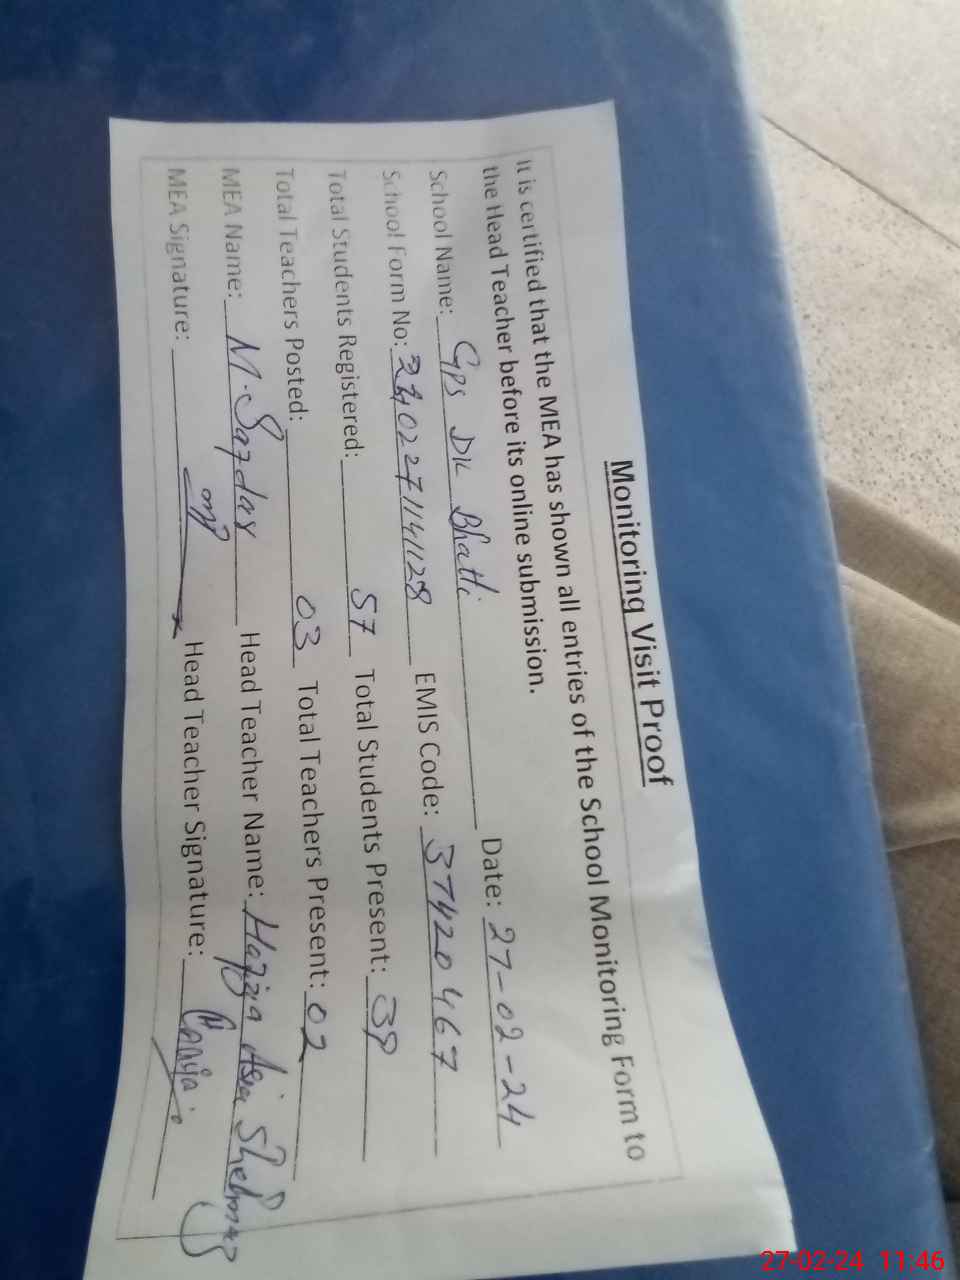 Monitoring Visit Proof
It is certified that the MEA has shown all entries of the School Monitoring Form to
the Head Teacher before its online submission.
School Name: GPS DK Bhatti Date: 27-02-24
School Form No: EMIS Code: 37420467
Total Students Registered: 57 Total Students Present: 39
Total Teachers Posted: 03 Total Teachers Present: 02
MEA Name: M. Head Teacher Name: Asia
MEA Signature: Head Teacher Signature:
27-02-24 11:46